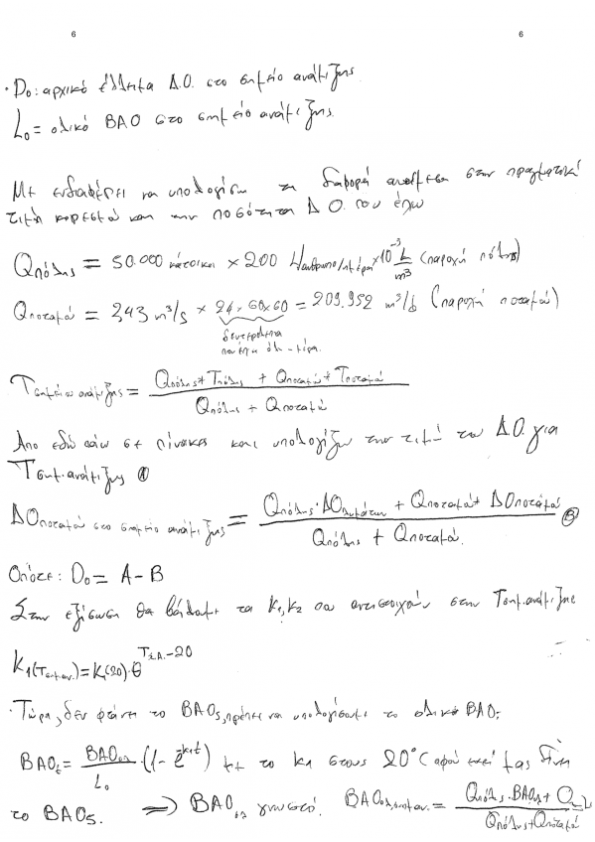 6 6
· Dο: αρχικό έλλειμα Δ.Ο. στο σημείο ανάμιξης
Lο = ολικό ΒΑΟ στο σημείο ανάμιξης.
Με ενδιαφέρει να υπολογίσω τη διαφορά ανάμεσα στην πραγματική
τιμή κορεσμού και την ποσότητα Δ.Ο. που έχω
Qπόλης = 50.000 κάτοικοι × 200 L/άνθρωπο/ημέρα × 10⁻³ L/m³ (παροχή πόλης)
Qποταμού = 2,43 m³/s × 24 · 60 × 60 = 209.952 m³/d (παροχή ποταμού)
δευτερόλεπτα
Τσημείου ανάμιξης = Qπόλης * Τπόλης + Qποταμού * Τποταμού
Qπόλης + Qποταμού
Από εδώ πάω σε πίνακα και υπολογίζω την τιμή του Δ.Ο. για
Τσημ. ανάμιξης
ΔΟποταμού στο σημείο ανάμιξης = Qπόλης · ΔΟλυμάτων + Qποταμού * ΔΟποταμού
Qπόλης + Qποταμού.
Οπότε: Dο = A - B
Στην εξίσωση θα βάλουμε τα K1, K2 που αντιστοιχούν στην Τσημ. ανάμιξης
K1(Τσημ.αν.) = K1(20) · θ^Τσ.α.-20
· Τώρα, δεν φτάνει το ΒΑΟ5, πρέπει να υπολογίσουμε το ολικό ΒΑΟ:
ΒΑΟt = ΒΑΟολ (1 - e^-k1t) με το k1 στους 20°C αφού εκεί μας δίνει
Lο
το ΒΑΟ5. ⇒ ΒΑΟολ γνωστό. ΒΑΟολ,σημ.αν. = Qπόλης · ΒΑΟολ +
Qπόλης + Qποταμού